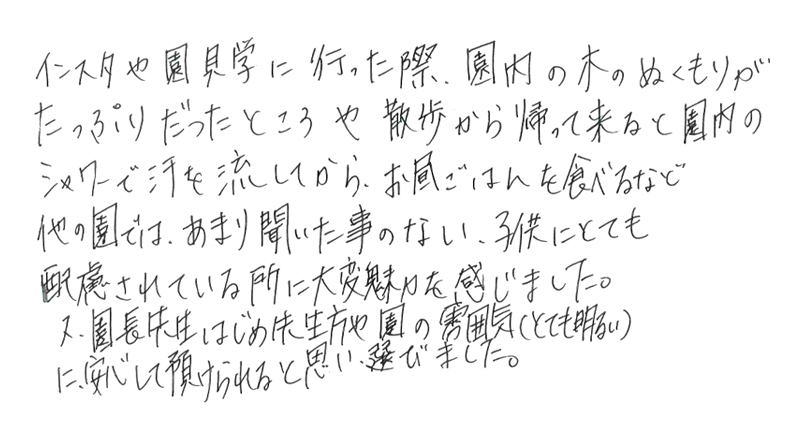 インスタや園見学に行った際、園内の木のぬくもりが
たっぷりだったところや散歩から帰って来ると園内の
シャワーで汗を流してから、お昼ごはんを食べるなど
他の園では、あまり聞いた事のない、子供にとても
配慮されている所に大変魅力を感じました。
又、園長先生はじめ先生方や園の雰囲気(とても明るい)
に、安心して預けられると思い、選びました。